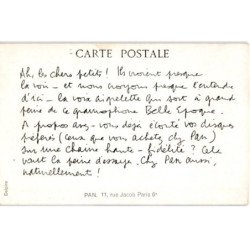 CARTE POSTALE
Ah, les chers petits ! Ils croient presque
la voir - et nous croyons presque l'entendre
d'ici - la voix aigrelette qui sort à grand
peine de ce gramophone Belle Epoque.
A propos avez-vous déjà écouté vos disques
préférés (ceux que vous achetez chez Pan)
sur une chaîne haute-fidélité ? Cela
vaut la peine d'essayer. Chez Pan aussi,
naturellement !
PAN, 11, rue Jacob Paris 6e